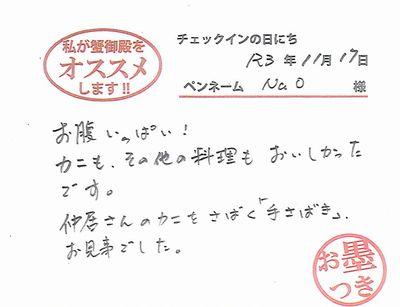 私が蟹御殿を
オススメ
します!!
チェックインの日にち
R3 年 11月 17日
ペンネーム NaO 様
お腹いっぱい!
カニも、その他の料理もおいしかった
です。
仲居さんのカニをさばく「手さばき」、
お見事でした。
お墨
つき